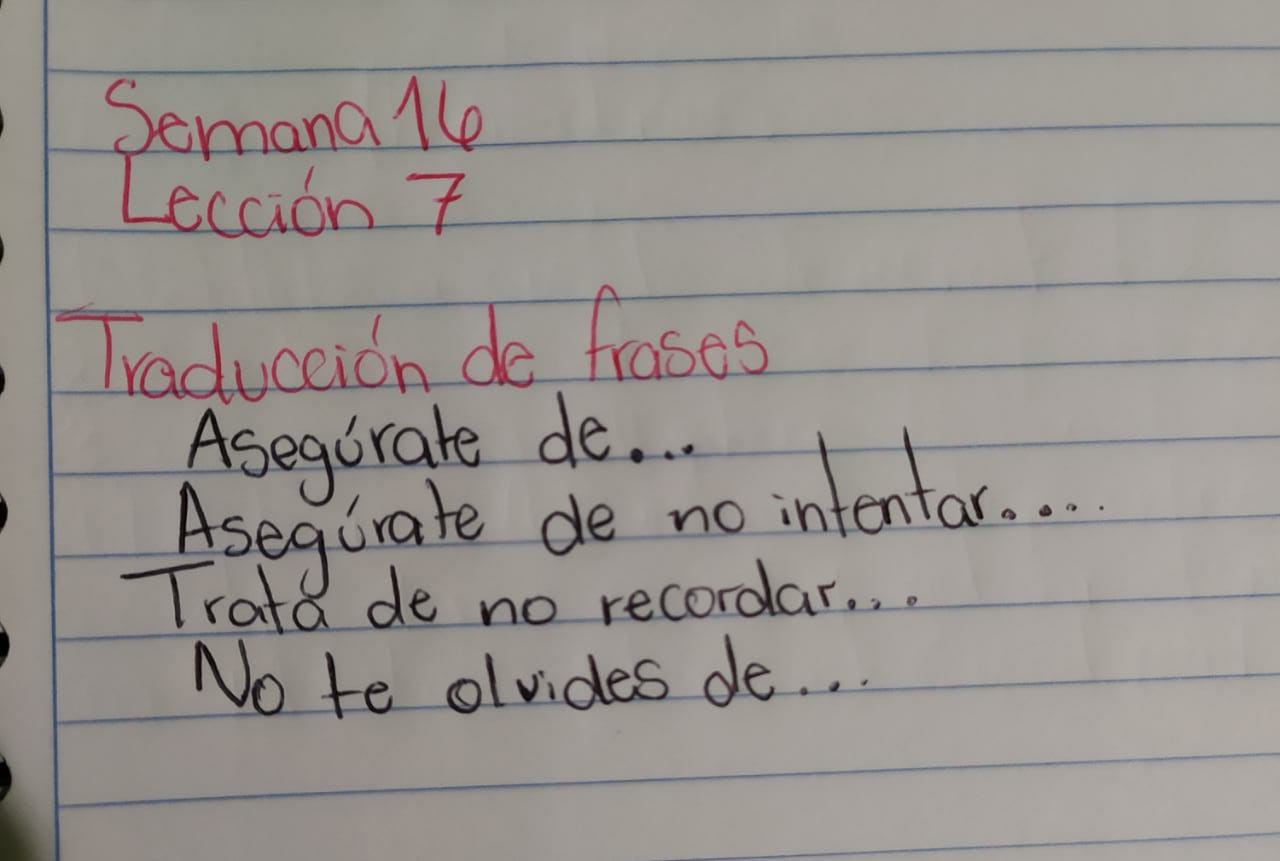 Semana 16
Lección 7
Traducción de frases
Asegúrate de...
Asegúrate de no intentar....
Trata de no recordar...
No te olvides de...